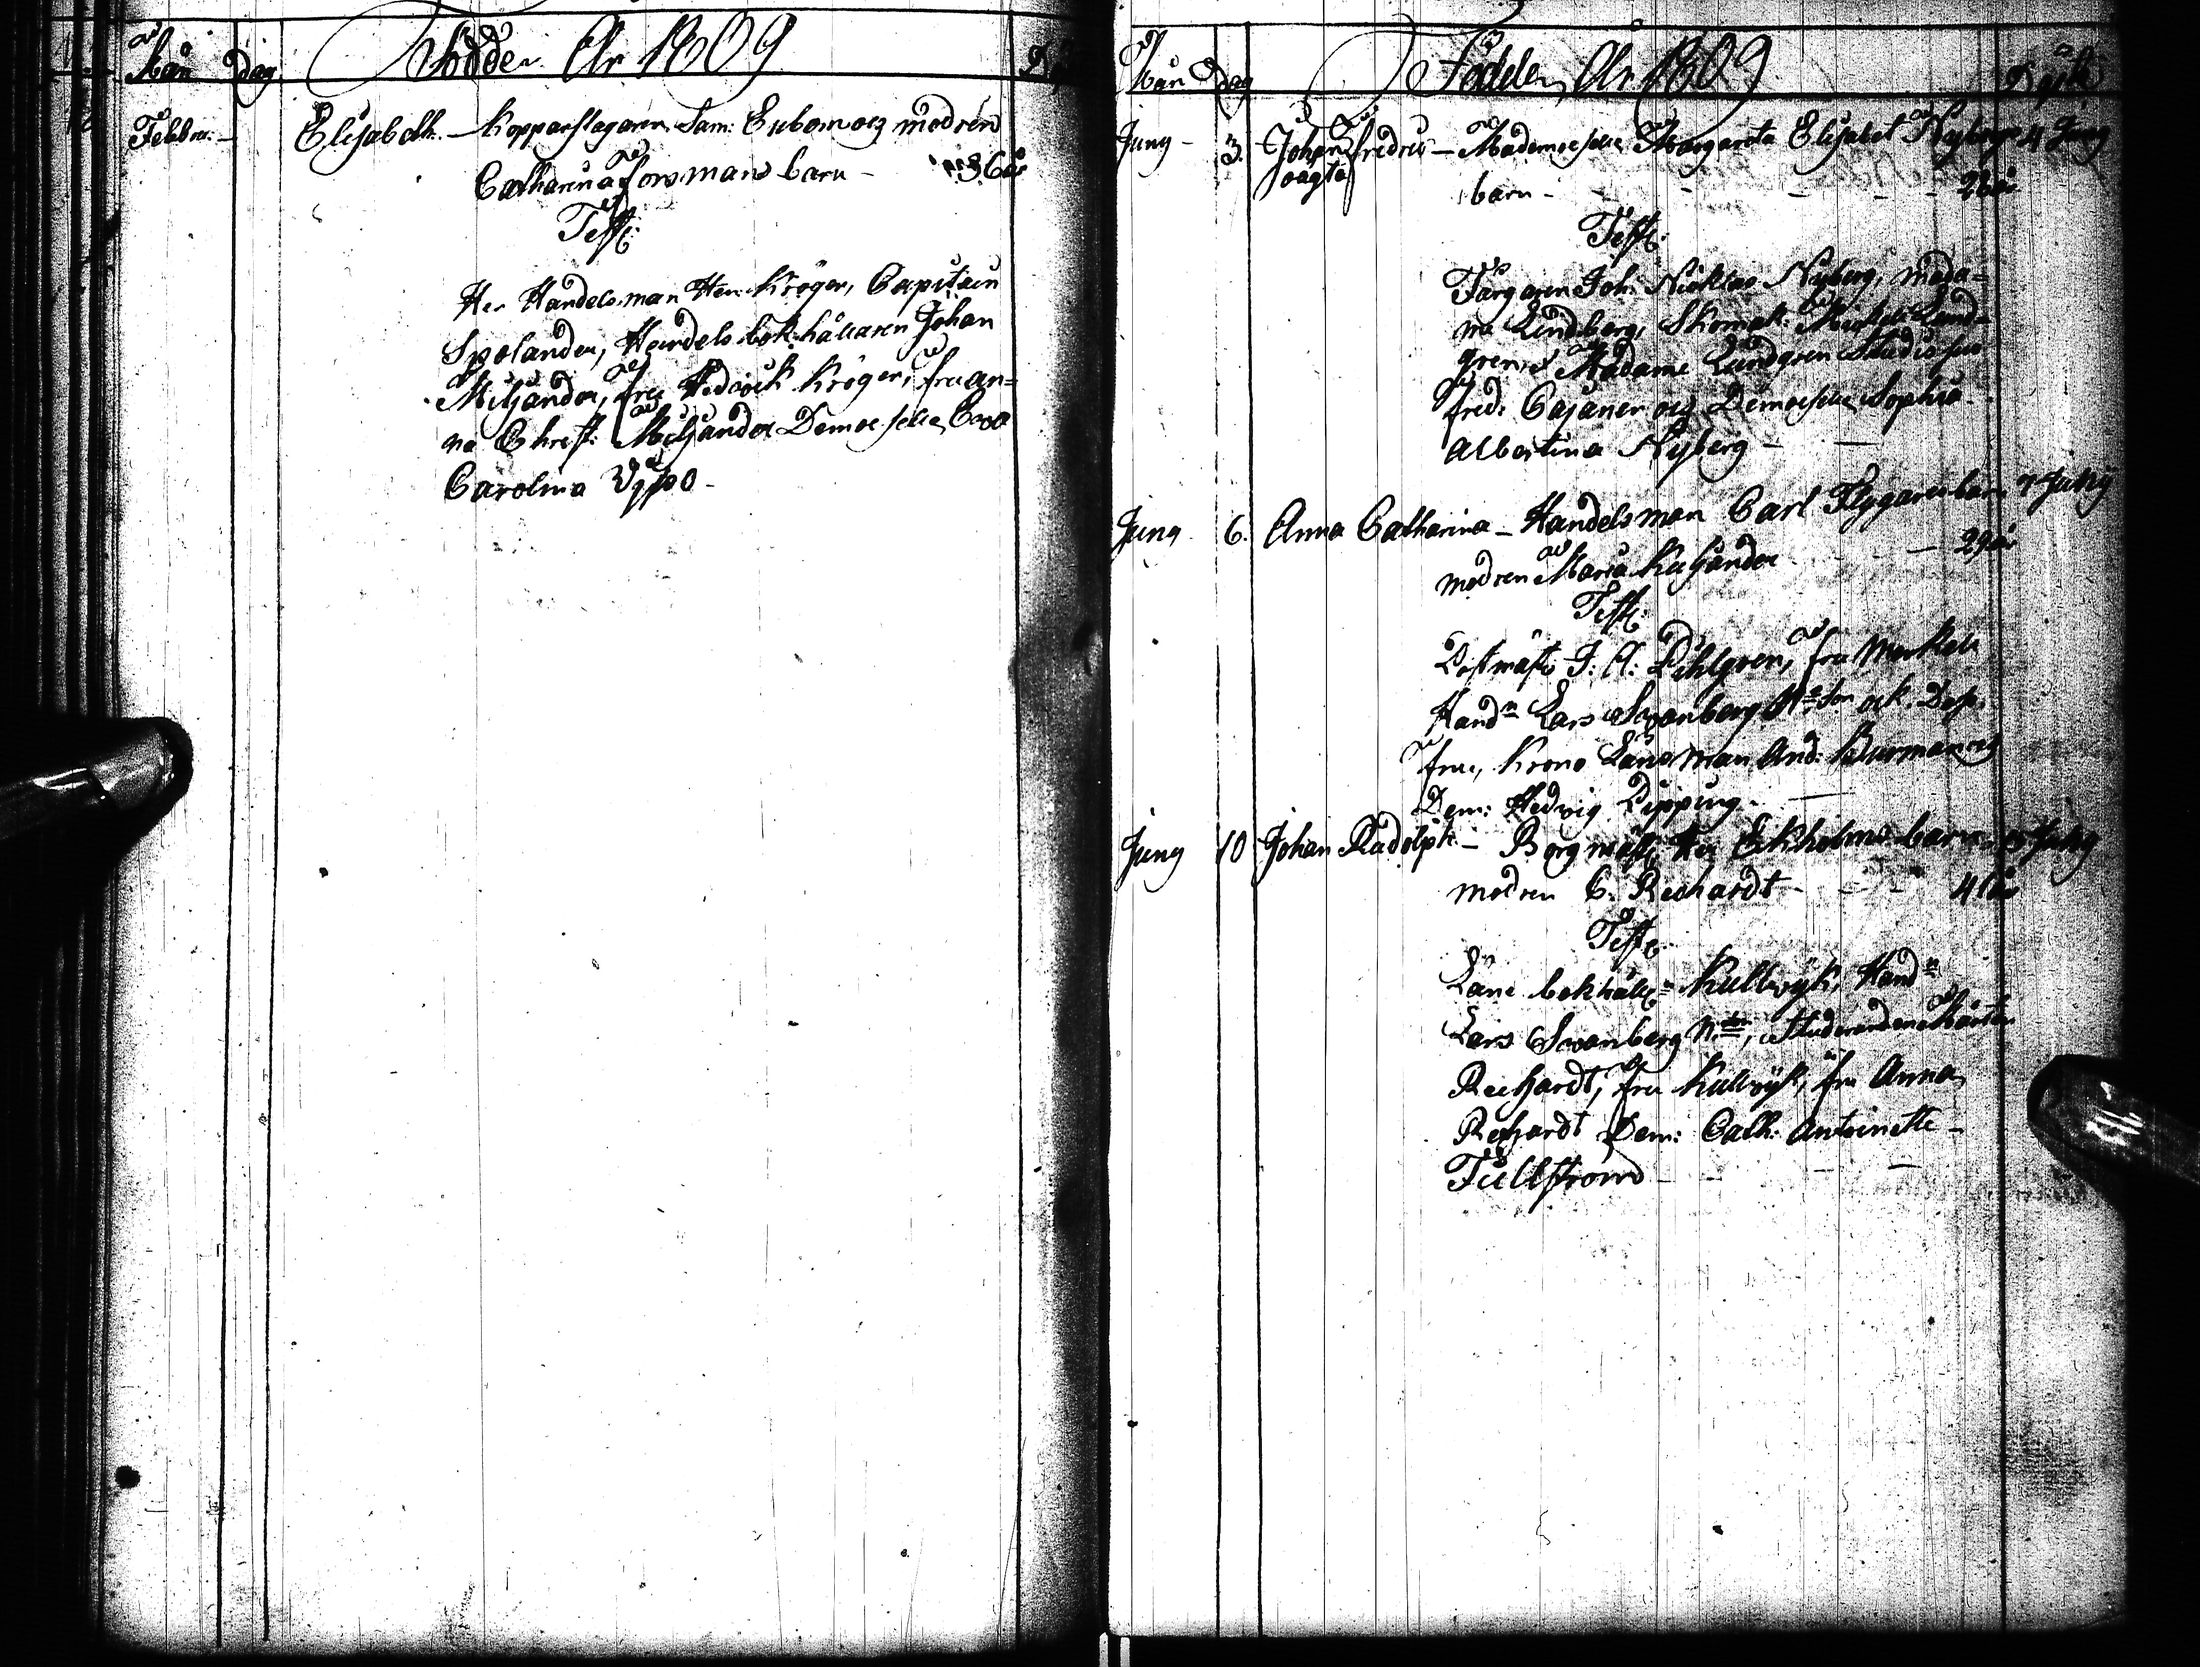 Mån dag Födde År 1809
Febbru: Elisabeth. – Kopparslagaren Sam: Enbom och modren
Catharina Forsmans barn – 36 år
Test:
Her Handelsman Hen: Kröger, Capitain
Spolander, Handels bok:hållaren Johan
Miljander, fru Hedvick Kröger, fru an=
na Christ: Miljander Demoiselle Eva
Carolina Uppo –
Mån dag Födde År 1809 Dope
Juny – 3. Johan Fredric – Mademoiselle Margareta Elisabet Nybergs 4 Juny
oägta barn – 26 år
Test:
Färgaren Joh: Nicklas Nyberg, mada=
me Lindberg, Skomak: Mickels Lund=
gren, Madame Lundgren
Fred: Cajaner och Demoiselle Sophia
Albertina Nyberg –
Juny 6. Anna Catharina – Handelsman Carl Flygares barn 7 Juny
modren Maria Keckander – 29 år
Test:
Postmäst: J: A: Pihlgren, fru Merkell
Handn Lars Swanberg Nilsson ock Dess
fru, Krono Länsman And: Burman och
Dem: Hedvig Pipping –
Juny 10 Johan Rudolph – Borgmäst: Her Ekholms barn Juny
modren C. Rechardt – 41 år
Test:
Läns bokhålln Kullwyk, Handn
Lars Swanberg Nilsson, Studeranden
Rechardt, fru Kullwyk, fru Anna
Rechardt Dem: Cath: Antoinette –
Tullström –